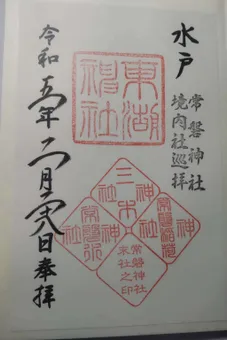 水戸
常磐神社
境内社巡拝
東湖
神社
三木
神社
常磐稲荷
神社
常磐神社
末社之印
令和五年二月二十八日奉拝